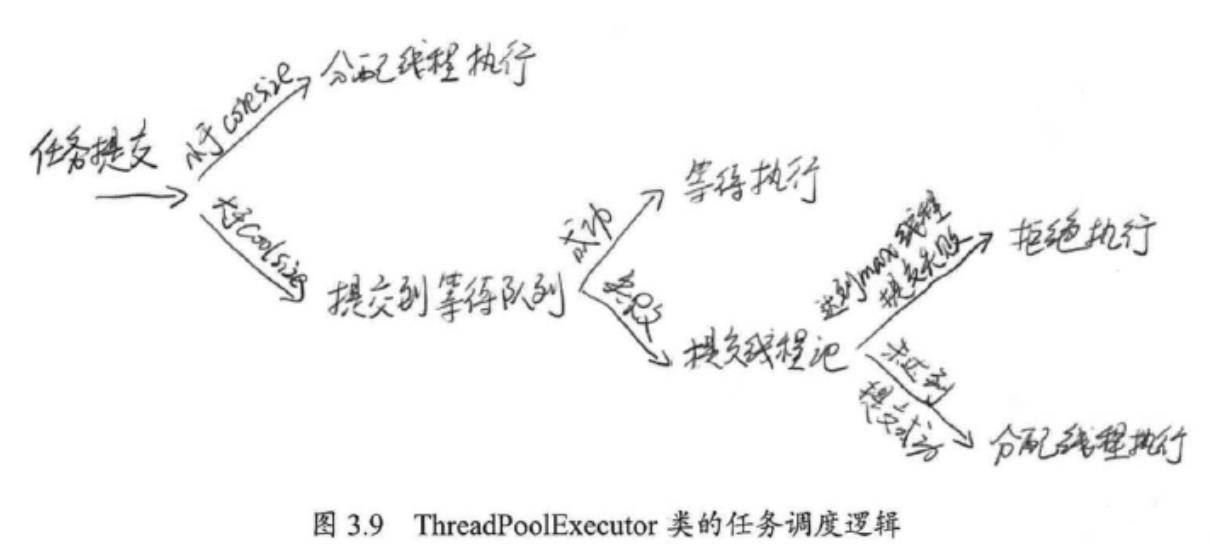 任务提交
小于coresize
分配线程执行
大于coolsize
提交到等待队列
成功
等待执行
失败
提交线程池
达到max线程
提交失败
拒绝执行
未达到
提交成功
分配线程执行
图 3.9 ThreadPoolExecutor 类的任务调度逻辑